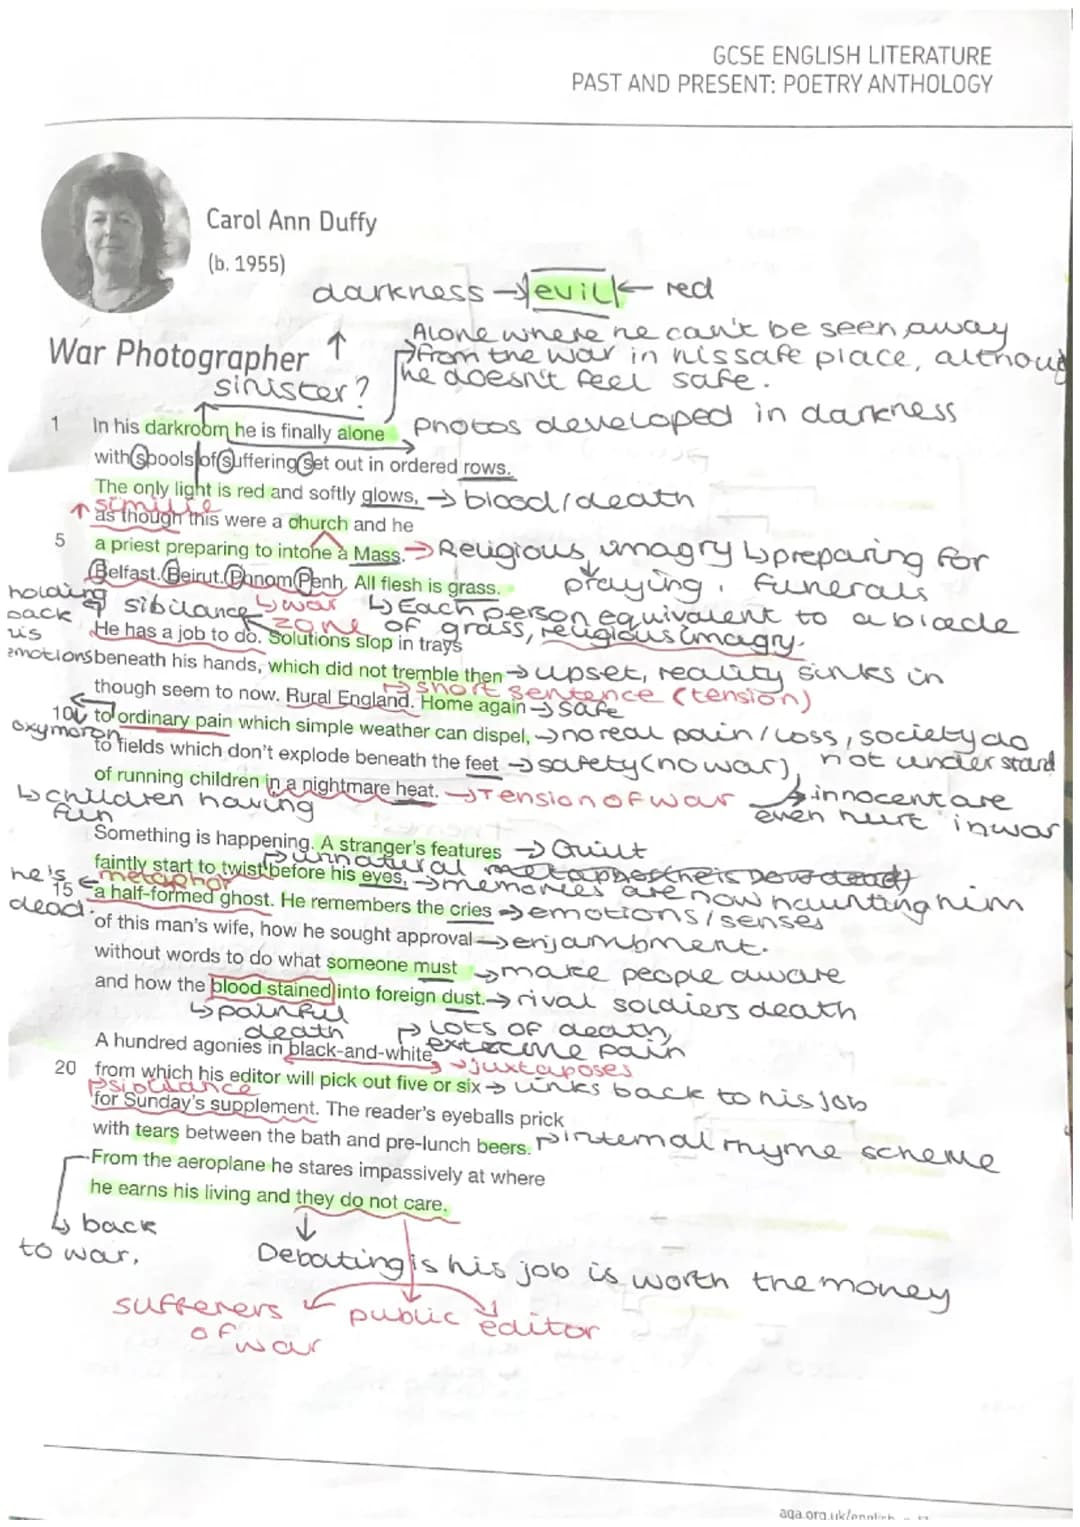 GCSE ENGLISH LITERATURE
PAST AND PRESENT: POETRY ANTHOLOGY
Carol Ann Duffy
(b. 1955)
darkness → evil ← red
War Photographer
sinister?
Alone where he can't be seen, away
from the war in his safe place, althoug
he doesn't feel safe.
Photos developed in darkness
1 In his darkroom he is finally alone
with spools of suffering set out in ordered rows.
The only light is red and softly glows, → blood/death
similie
as though this were a church and he
5 a priest preparing to intone a Mass. → Religious imagry ↳ preparing for
praying. funerals
Belfast. Beirut. Phnom Penh. All flesh is grass.
holding back his emotions
sibilance ↳ war zone
↳ Each person equivalent to a blade
of grass, religious imagry.
He has a job to do. Solutions slop in trays
beneath his hands, which did not tremble then → upset, reality sinks in
↳ short sentence (tension)
though seem to now. Rural England. Home again → safe
10 to ordinary pain which simple weather can dispel, → no real pain/loss, society do
not understand
oxymoron
to fields which don't explode beneath the feet → safety (no war),
of running children in a nightmare heat. → Tension of war
→ innocent are
even hurt in war
↳ children having
fun
Something is happening. A stranger's features → Guilt
faintly start to twist before his eyes, → memories are now haunting him
↳ unnatural metapher (he is now dead)
he's dead.
metaphor
15 a half-formed ghost. He remembers the cries → emotions/senses
of this man's wife, how he sought approval → enjambment.
without words to do what someone must → make people aware
and how the blood stained into foreign dust. → rival soldiers death
↳ painful
death
→ Lots of death,
extreme pain
A hundred agonies in black-and-white
→ juxtaposes
20 from which his editor will pick out five or six → links back to his job
sibilance
for Sunday's supplement. The reader's eyeballs prick
with tears between the bath and pre-lunch beers. → internal rhyme scheme
From the aeroplane he stares impassively at where
he earns his living and they do not care.
↳ back
to war.
Debating is his job is worth the money
sufferers
of war
public
editor